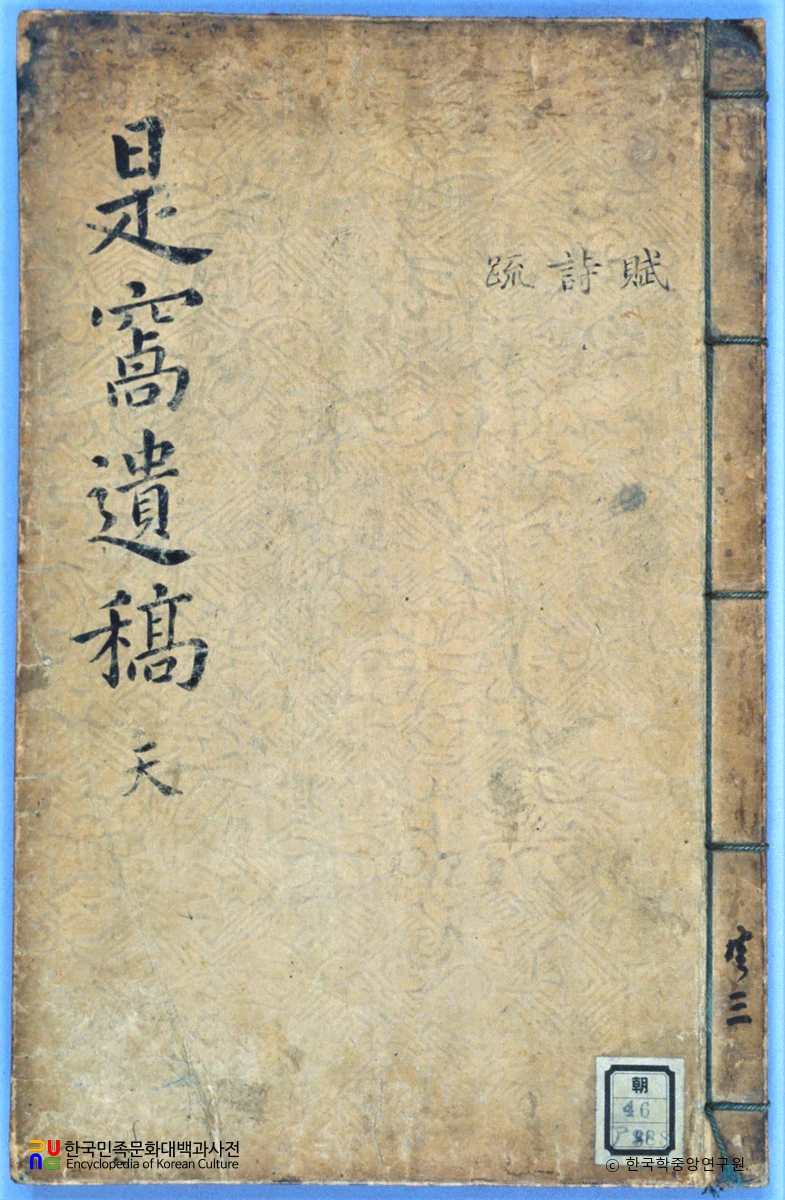 是窩遺稿 天
賦 詩 疏
共三
朝
46
한국민족문화대백과사전
Encyclopedia of Korean Culture
© 한국학중앙연구원.